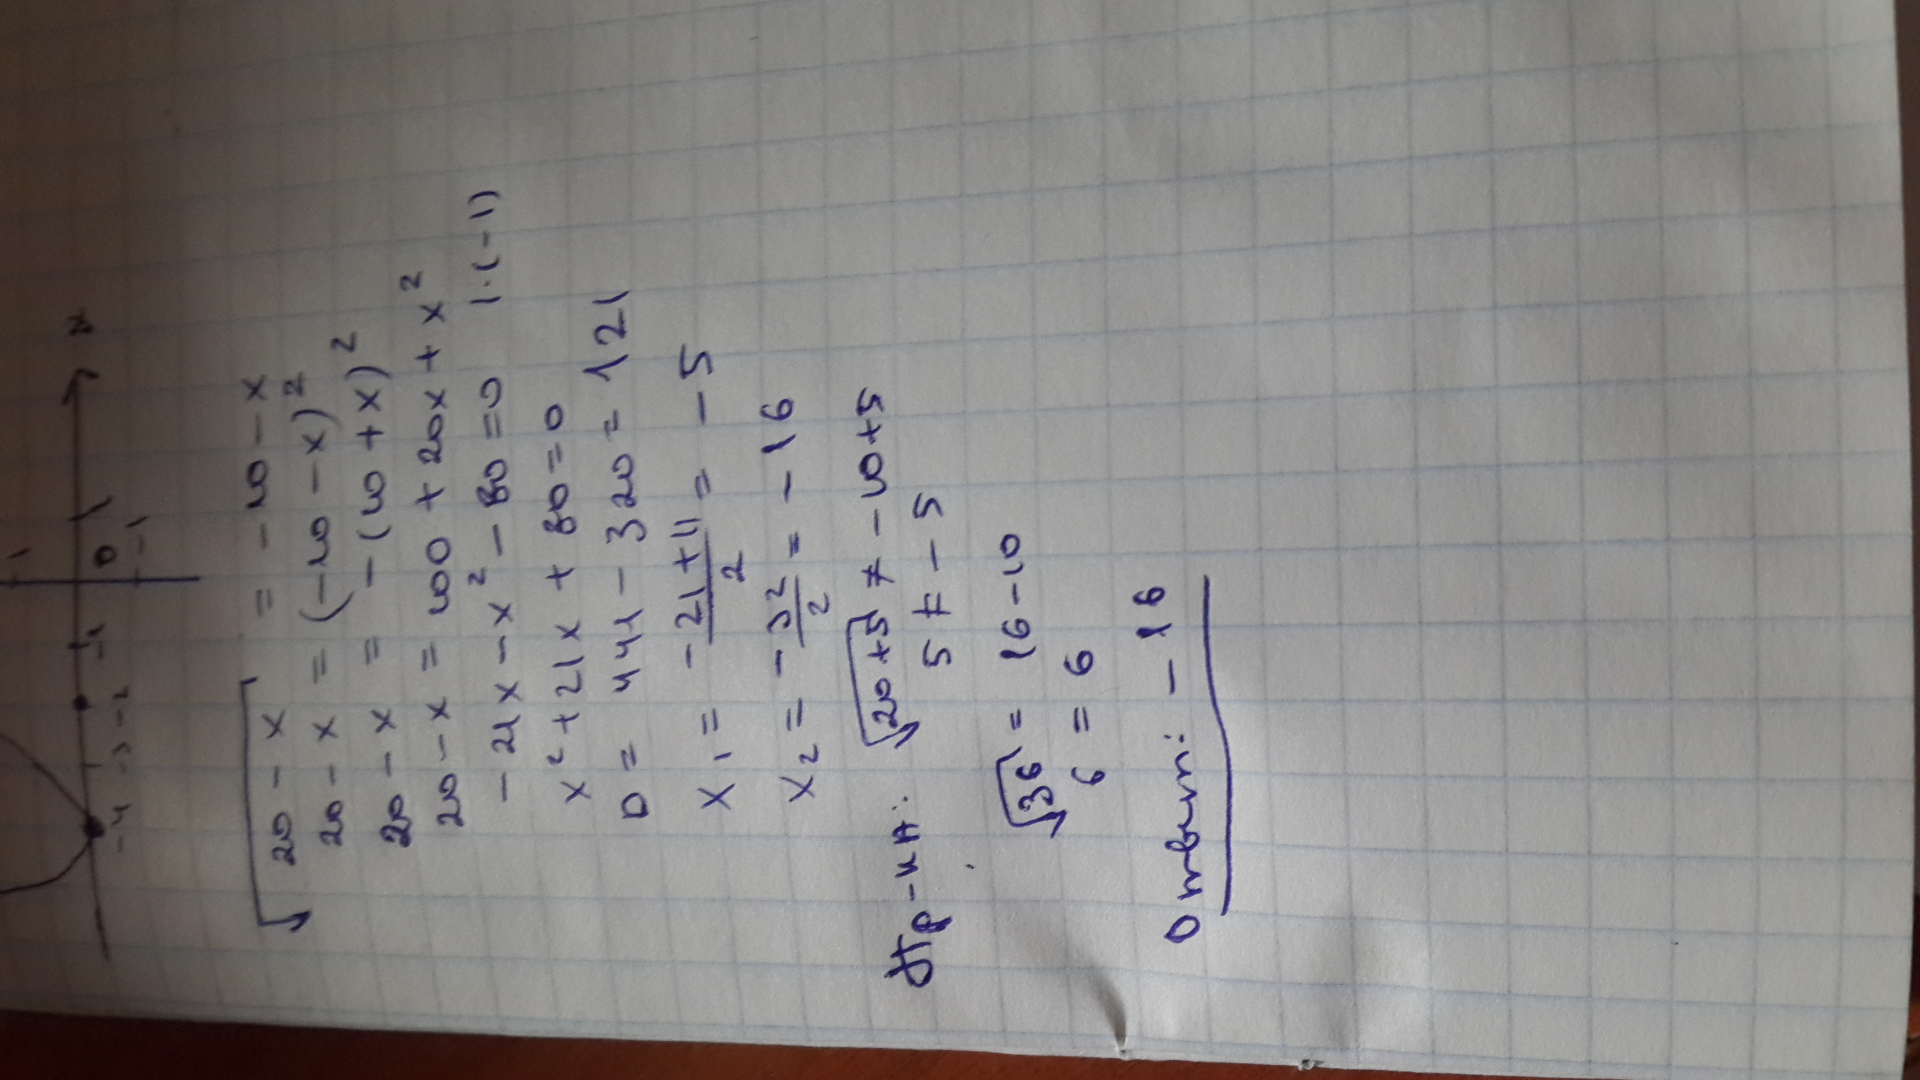 1
x
-4 -3 -2 -1 0
-1
√20-x = -10-x
20-x = (-10-x)²
20-x = -(10+x)²
20-x = 100+20x+x²
-21x-x²-80=0 |·(-1)
x²+21x+80=0
D= 441-320=121
x₁= -21+11/2 = -5
x₂= -32/2 = -16
Пр-ка: √20+5 ≠ -10+5
5 ≠ -5
√36 = 16-10
6 = 6
Ответ: -16